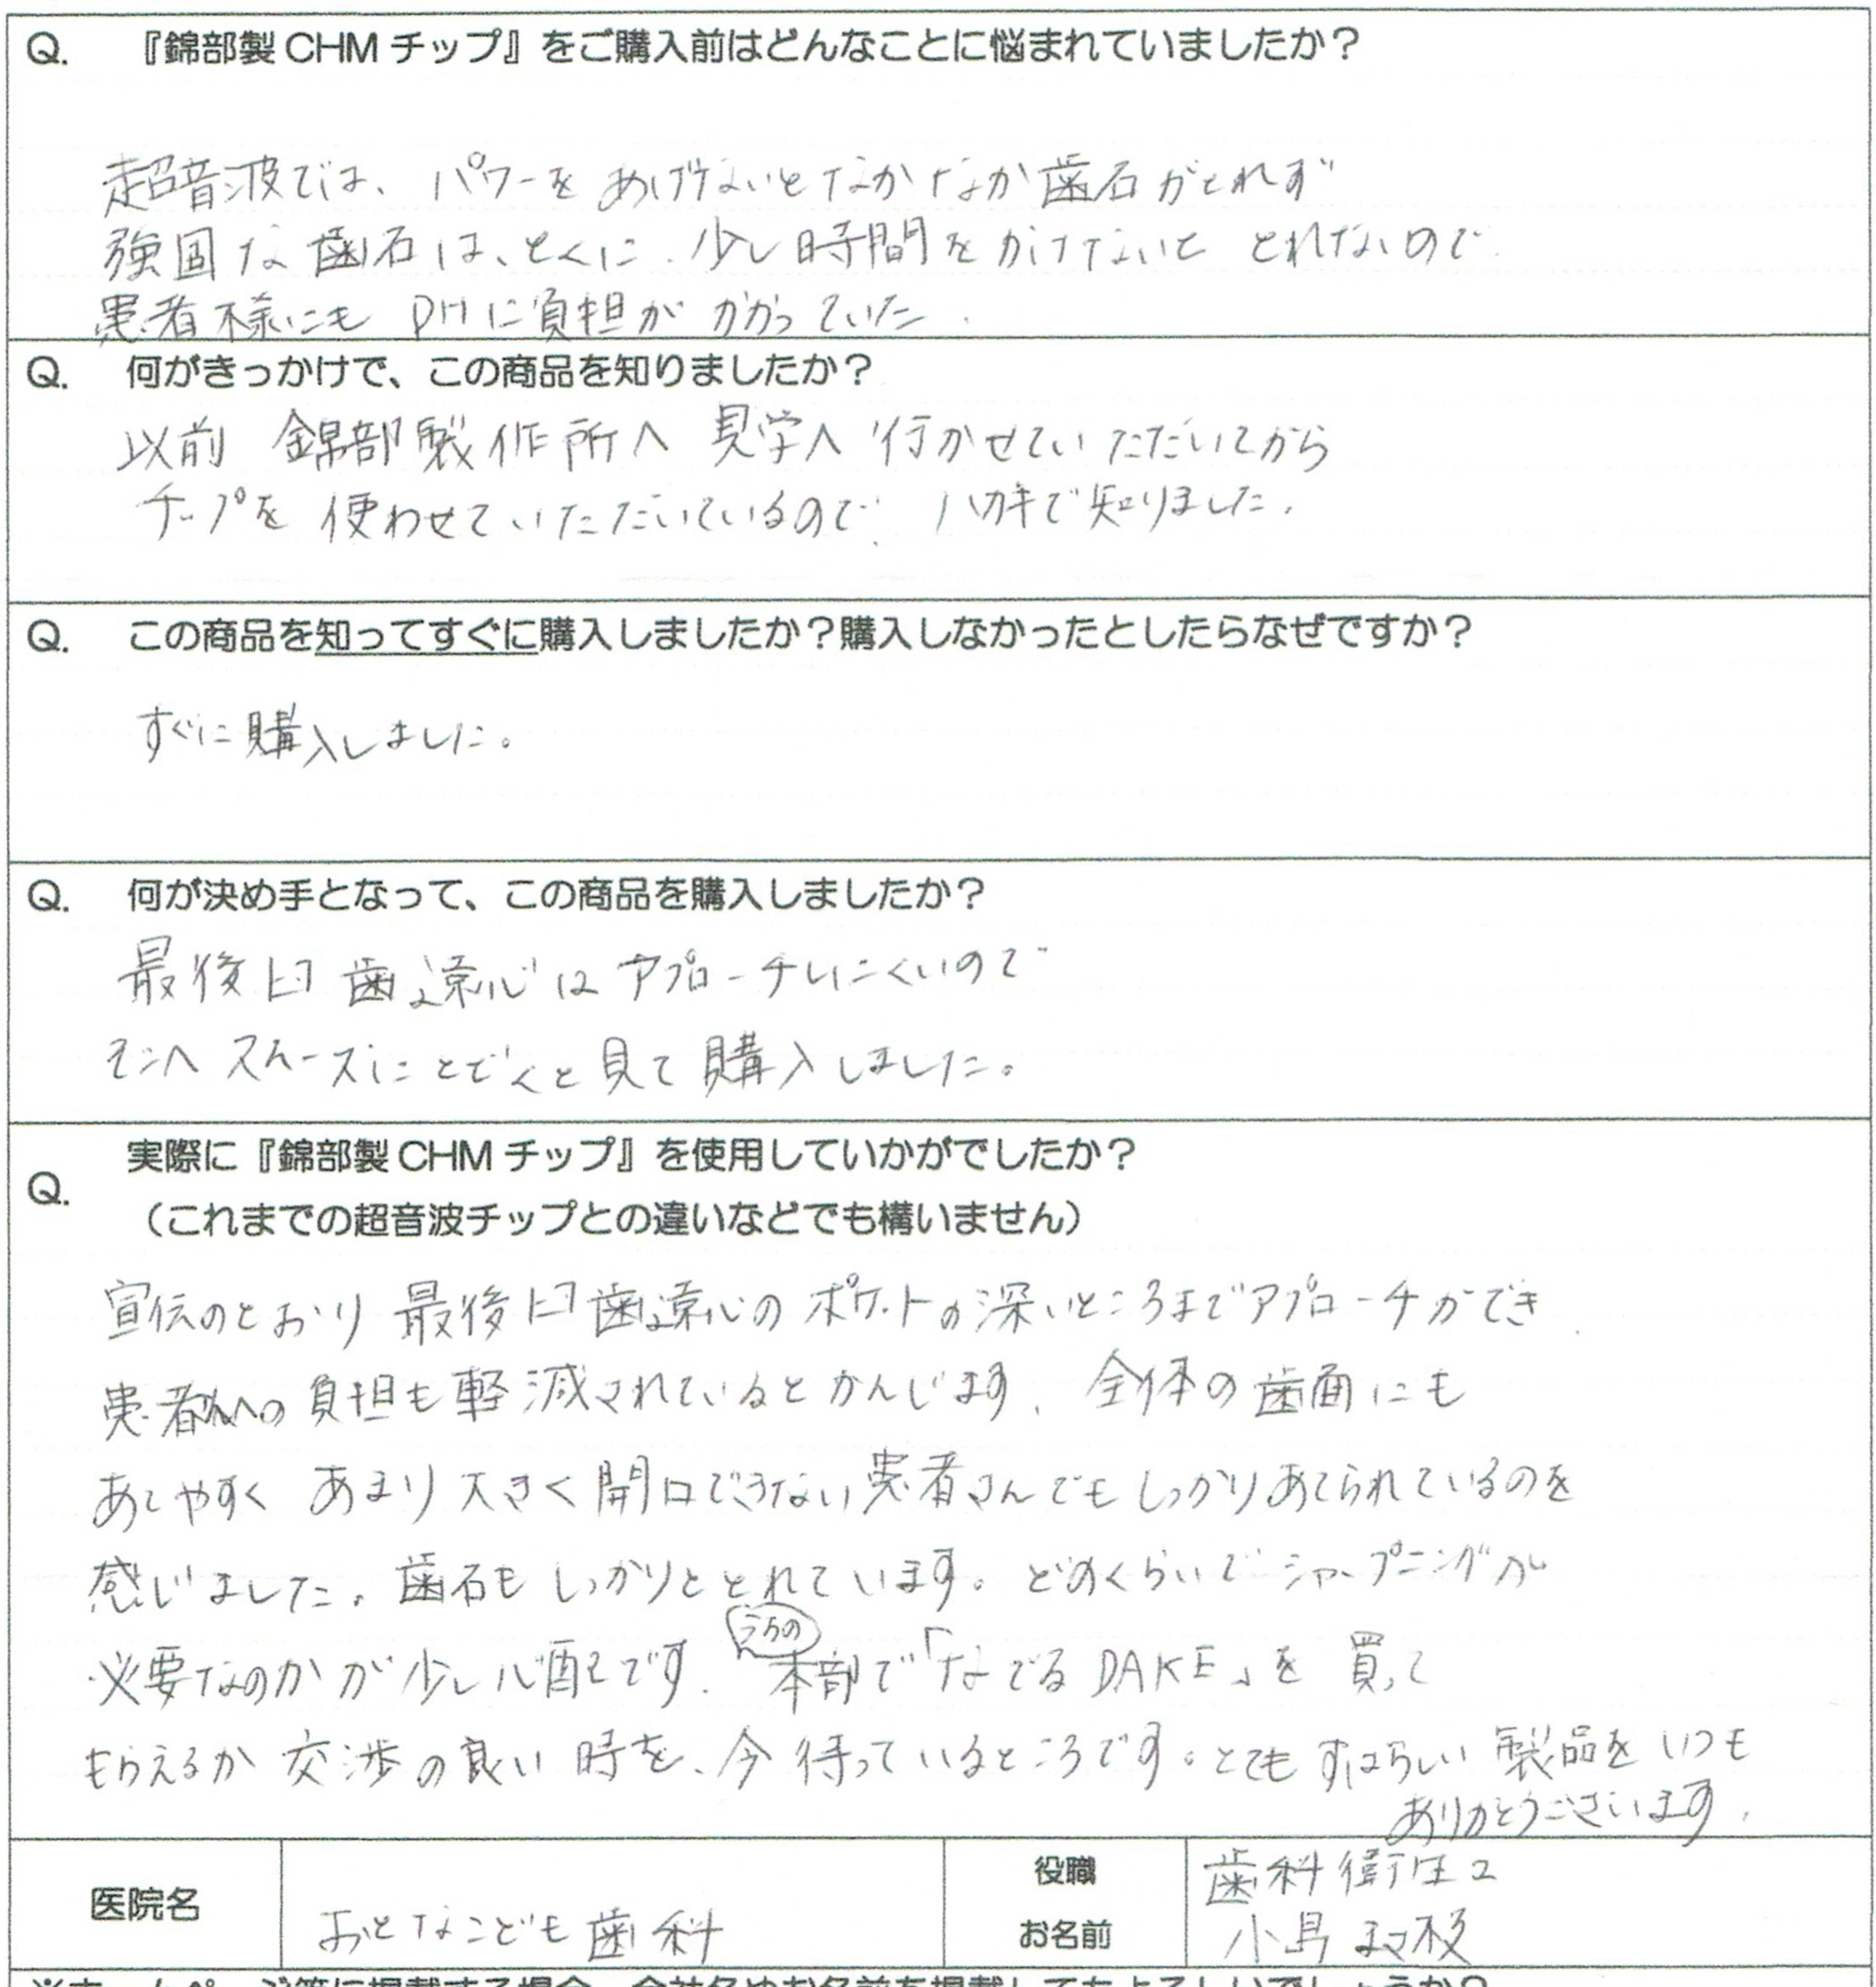 Q. 『錦部製 CHM チップ』をご購入前はどんなことに悩まれていましたか？
超音波では、パワーをあげないとなかなか歯石がとれず
強固な歯石は、とくに、少し時間をかけないと とれないので、
患者様にも DHに負担が かかっていた.
Q. 何がきっかけで、この商品を知りましたか？
以前 錦部製作所へ 見学へ 行かせていただいてから
チップを 使わせていただいているので、ハガキで知りました.
Q. この商品を知ってすぐに購入しましたか？購入しなかったとしたらなぜですか？
すぐに購入しました。
Q. 何が決め手となって、この商品を購入しましたか？
最後臼歯遠心は アプローチしにくいので
そこへ スムーズに とどくと 見て 購入しました。
実際に『錦部製 CHM チップ』を使用していかがでしたか？
Q.
（これまでの超音波チップとの違いなどでも構いません）
宣伝のとおり 最後臼歯遠心の ポケットの深いところまでアプローチができ、
患者さんへの負担も軽減されているとかんじます. 全体の歯面にも
あてやすく あまり大きく開口できない患者さんでもしっかりあてられているのを
感じました。歯石もしっかりととれています。どのくらいでシャープニングが
うちの
必要なのかが少し心配です. 本部で「なでるDAKE」を 買って
もらえるか 交渉の良い時を、今待っているところです。とても すばらしい 製品を いつも
ありがとうございます.
医院名 おとなこども歯科
役職 歯科衛生士
お名前 小島
※ホームページ等に掲載する場合、会社名やお名前を掲載してもよろしいでしょうか？